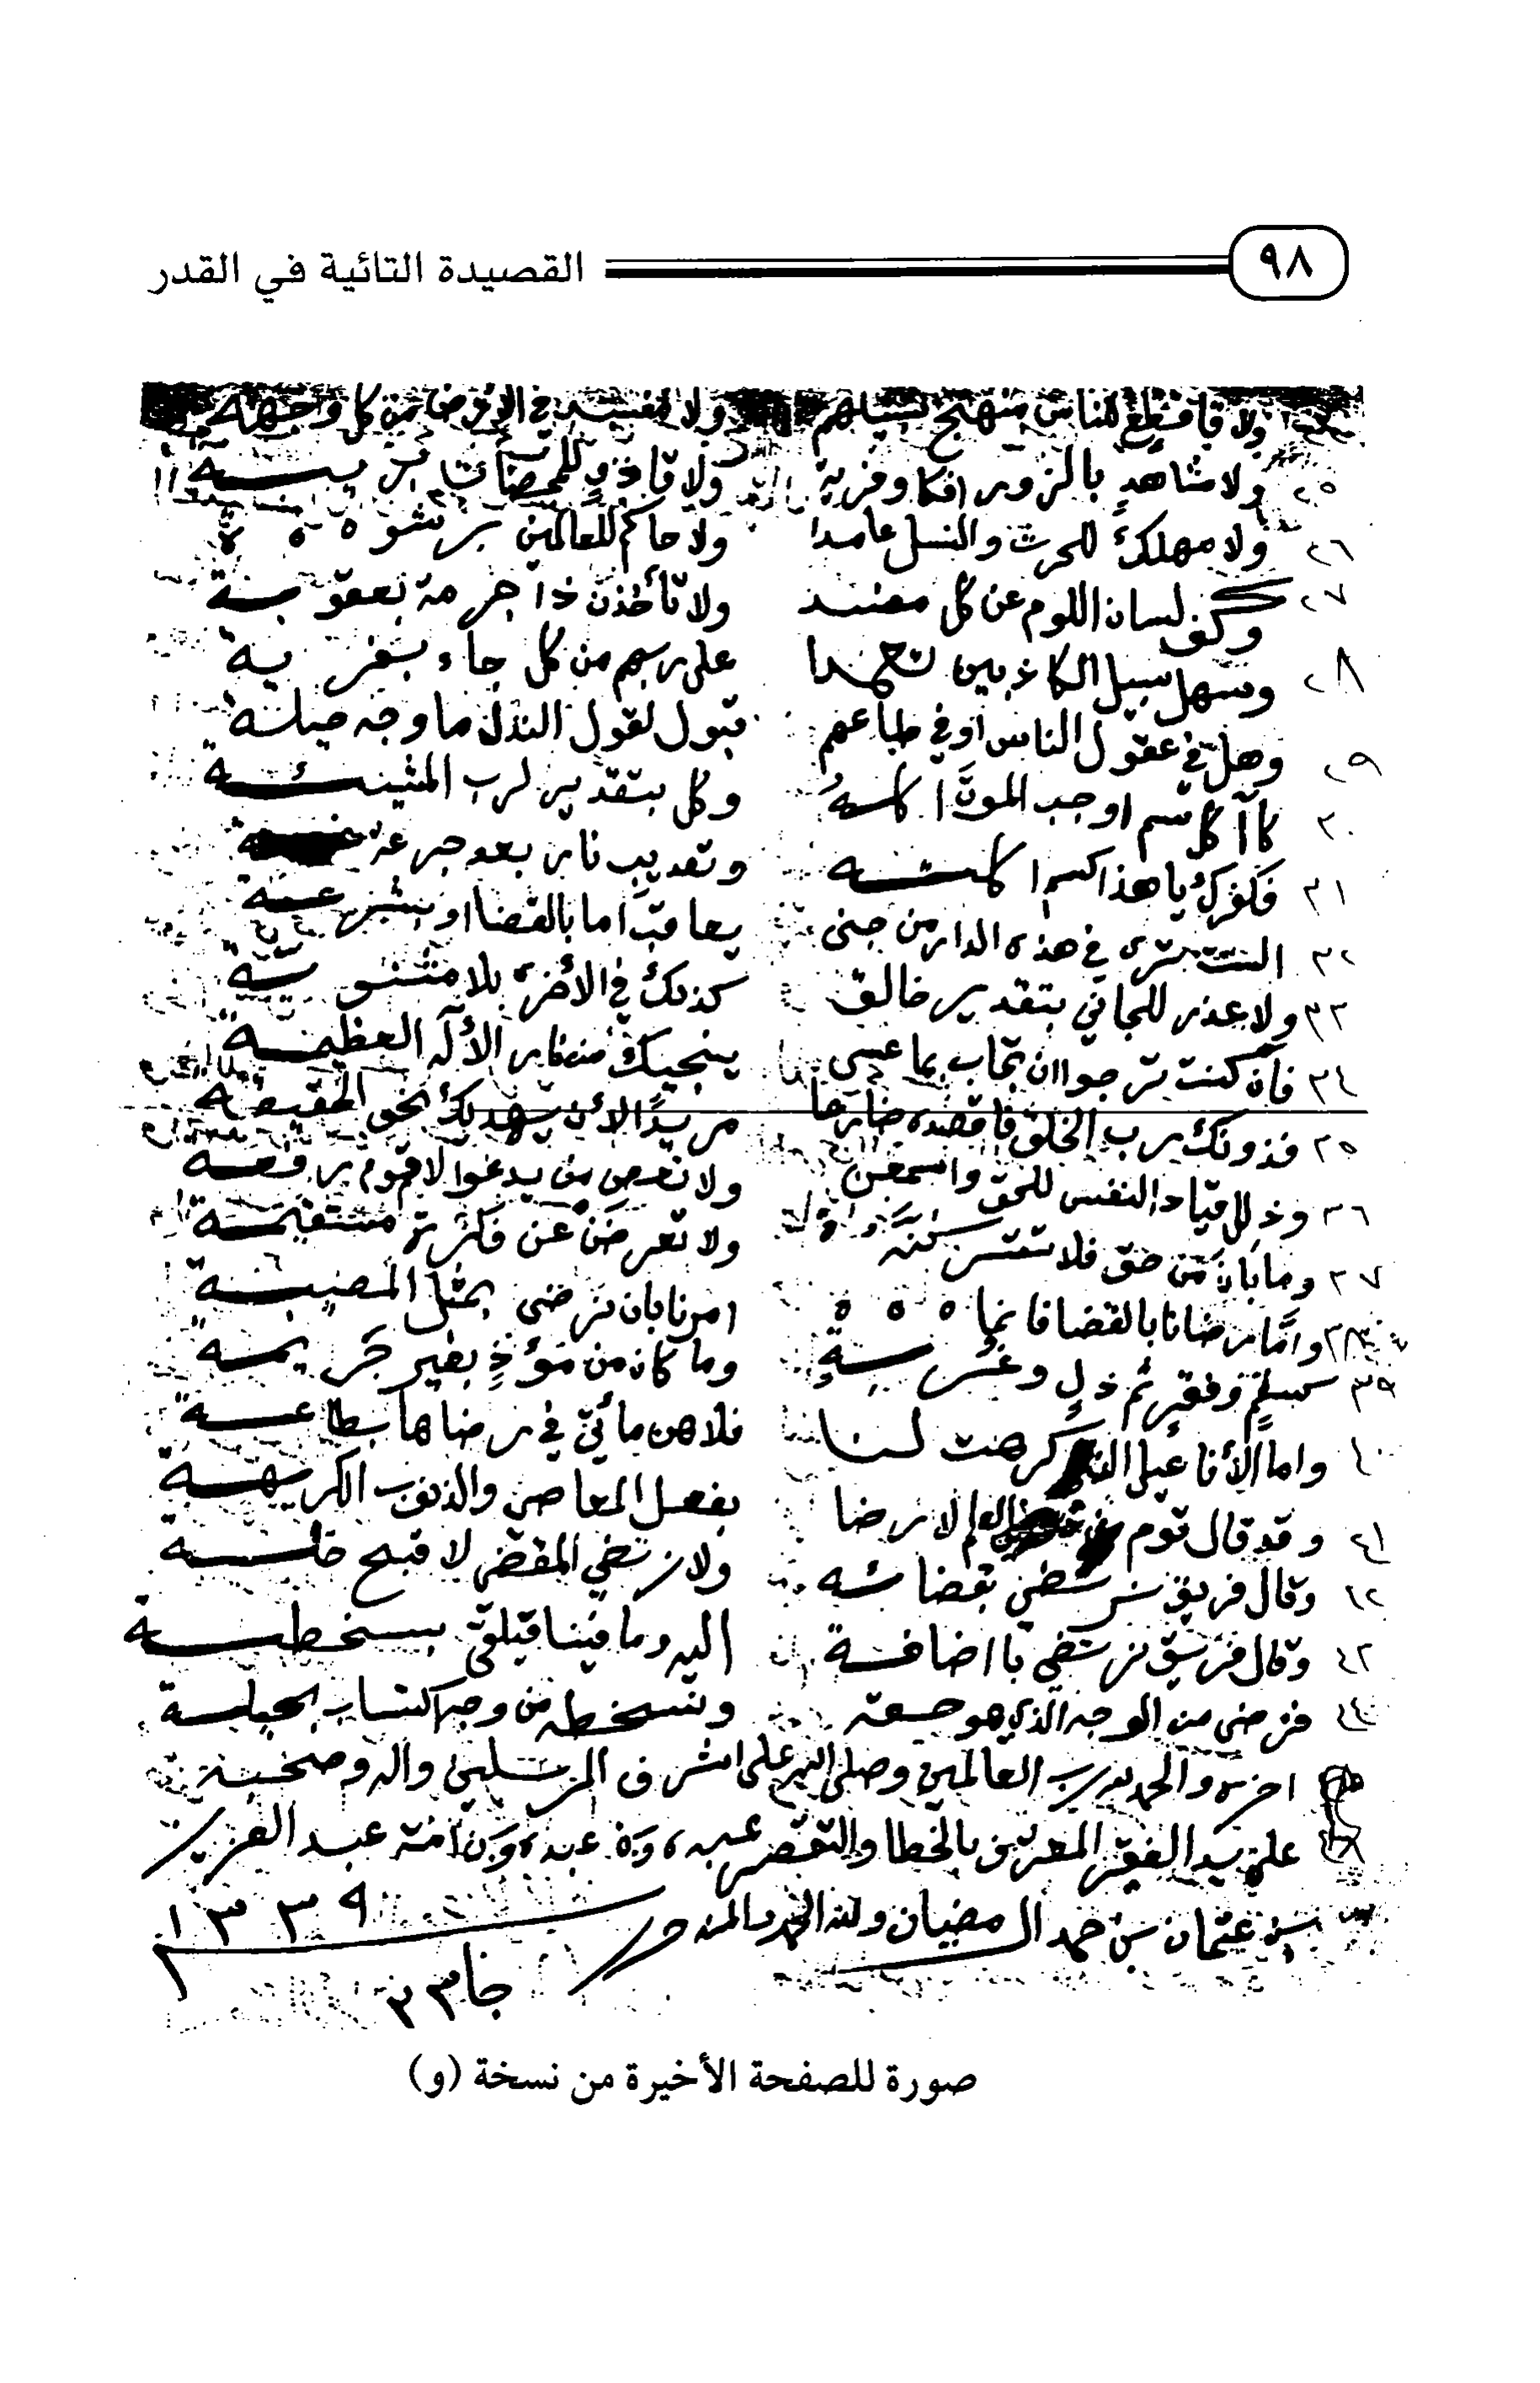 ٩٨ القصيدة التائية في القدر
ولا قاطع للناس منهج سبيلهم ولا مفسد في الارض من كل وجهة
٢٥ ولا شاهد بالزور افكا وفرية ولا قاذف للمحصنات بريبة
٢٦ ولا مهلك للحرث والنسل عامدا ولا حاكم للعالمين برشوة
٢٧ وكف لسان اللوم عن كل مفسد ولا تأخذن ذا جرمة بعقوبة
٢٨ وسهل سبيل الكاذبين تعمدا على ربهم من كل جاء بفرية
٢٩ وهل في عقول الناس او في طباعهم قبول لقول النذل ما وجه حيلة
٣٠ كآكل سم اوجب الموت اكله وكل بتقدير لرب المشيئة
٣١ فكفرك يا هذا كسم اكلته وتعذيب نار بعد جرعة
٣٢ الست ترى في هذه الدار من جنى يعاقب اما بالقضا او بشرعة
٣٣ ولا عذر للجاني بتقدير خالق كذلك في الأخرى بلا مثنوية
٣٤ فان كنت ترجوا ان تجاب بما عسى ينجيك من نار الأله العظيمة
٣٥ فدونك رب الخلق فاقصده ضارعا مريدا لأن يهديك نحو الحقيقة
٣٦ وذلل قياد النفس للحق واسمعن ولا تعص من يدعوا لاقوم رفعة
٣٧ وما بان من حق فلا تتركنه ولا تعرضن عن فكرة مستقيمة
٣٨ واما رضانا بالقضا فانما امرنا بان نرضى بمثل المصيبة
٣٩ كسقم وفقر ثم ذل وغربة وما كان من مؤذ بغير جريمة
٤٠ واما الأفاعيل التي كرهت لنا فلا هن مأتي في رضاها بطاعة
٤١ وقد قال قوم من العلم لا رضا بفعل المعاصي والذنوب الكريهة
٤٢ وقال فريق نرتضي بقضائه ولا نرتضي المقضي لاقبح خلة
٤٣ وقال فريق نرتضي باضافة اليه وما فينا فيلقى بسخطة
٤٤ فنرضى من الوجه الذي هو خلقه ونسخطه من وجه اكتساب بحيلة
اخره والحمد لله رب العالمين وصلى الله على اشرف المرسلين واله وصحبه
على يد الفقير المعترف بالخطا والتقصير عبده وبن عبده وبن امته عبد العزيز
بن عثمان بن حمد ال مضيان ولله الحمد والمنه ١٣٣٩
صورة للصفحة الأخيرة من نسخة (و)